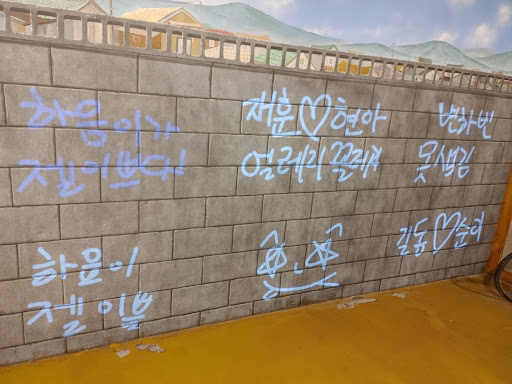 하음이가
젤 이쁘다!
재훈♡현아
얼레리 꼴레리
변하빈
못생김
하음이
젤 이쁨
길동♡순이